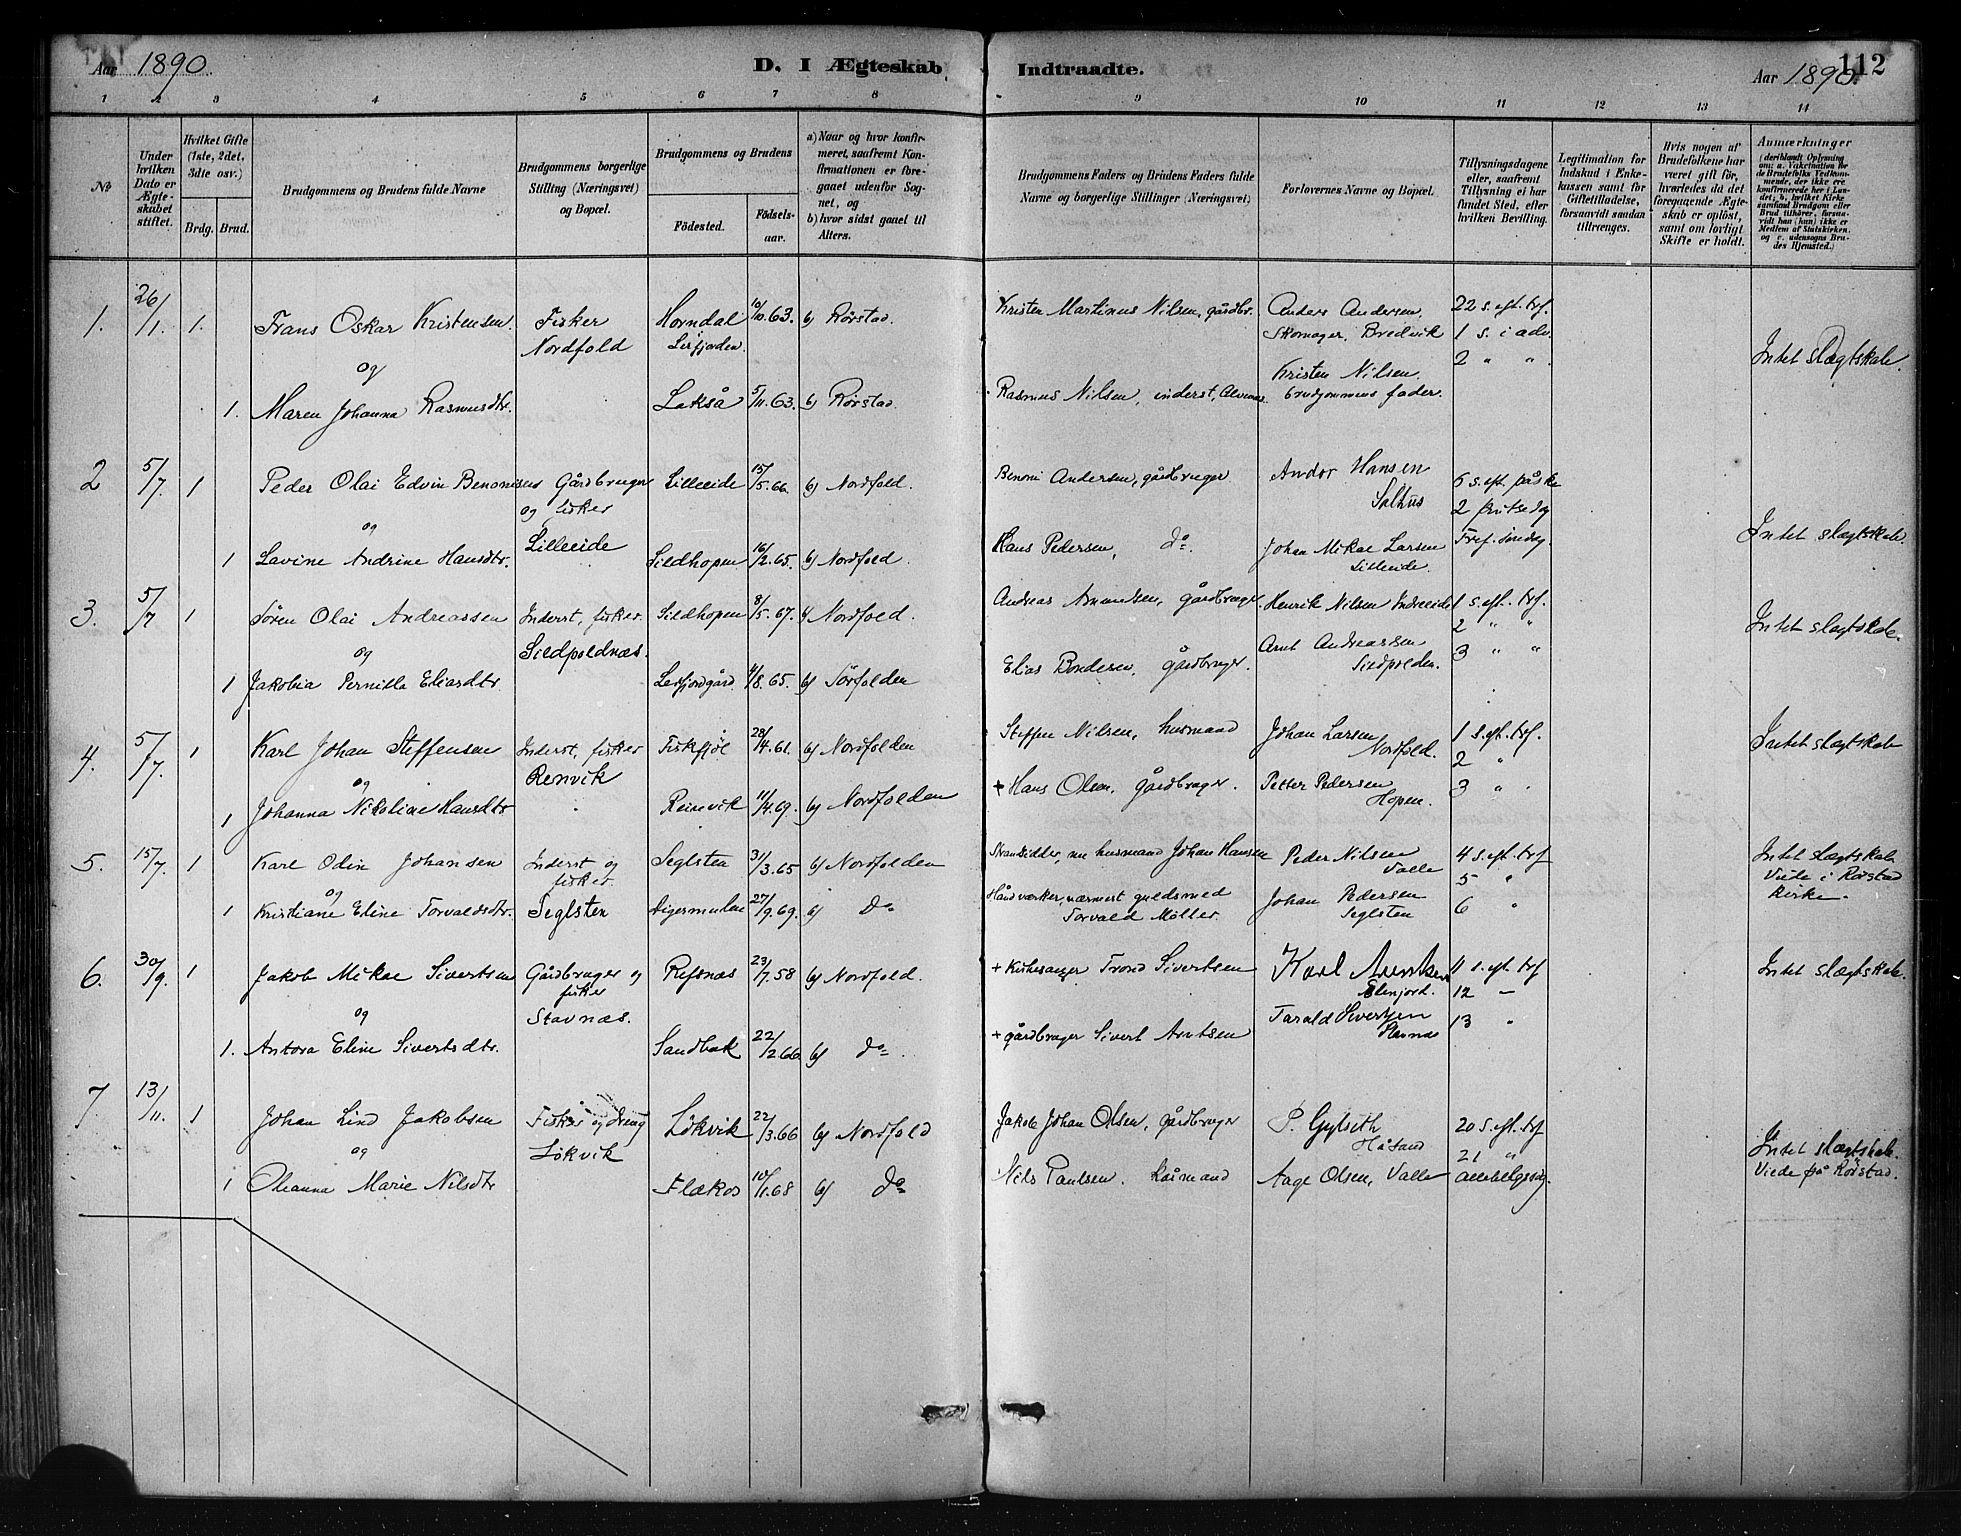 Aar 1890.
D. I Ægteskab Indtraadte.
112
Aar 1890.
1 2 3 4 5 6 7 8 9 10 11 12 13 14
No
Under hvilken Dato er Ægteskabet stiftet.
Hvilket Gifte (1ste, 2det, 3dte osv.)
Brdg. Brud.
Brudgommens og Brudens fulde Navne
Brudgommens borgerlige Stilling (Næringsvei) og Bopæl.
Brudgommens og Brudens
Fødested.
Fødselsaar.
a) Naar og hvor konfirmeret, saafremt Konfirmationen er foregaaet udenfor Sognet, og
b) hvor sidst gaaet til Alters.
Brudgommens Faders og Brudens Faders fulde Navne og borgerlige Stillinger (Næringsvei)
Forlovernes Navne og Bopæl.
Tillysningsdagene eller, saafremt Tillysning ei har fundet Sted, efter hvilken Bevilling.
Legitimation for Indskud i Enkekassen samt for Giftetilladelse, forsaavidt saadan tiltrænges.
Hvis nogen af Brudefolkene har været gift før, hvorledes da det foregaaende Ægteskab er opløst, samt om lovligt Skifte er holdt.
Anmerkninger
(deriblandt Oplysning om: a. Vakcination for de Brudefolks Vedkommende, der ikke ere konfirmerede her i Landet; b. hvilket Kirkesamfund Brudgom eller Brud tilhører, forsaavidt han (hun) ikke er Medlem af Statskirken, og c. udensogns Brudes Hjemsted.)
1. 26/1. 1. Frans Oskar Kristensen. Fisker Horndal 10/10.63. b) Rørstad. Kristen Martinus Nilsen, gårdbr. Anders Andersen, 22 s. eft. trf.
Nordfold Leirfjorden. Skomager, Bredvik 1 s. i adv.
og 2 " " Intet slægtskab.
Kristen Nilsen,
1. Maren Johanna Rasmusdtr. Lakså 5/11.63. b) Rørstad. Rasmus Nilsen, inderst, brudgommens fader.
2 5/7. 1 Peder Olai Edvin Benonisen Gårdbruger Lilleeide 15/5.66. b) Nordfold. Benoni Andersen, gårdbruger Andor Hansen 6 s. eft. påske
og fisker Salhus 2 pintsedag
og
Lilleeide Intet slægtskab.
1 Lavine Andrine Hansdtr. Sildhopen 16/2.65. b) Nordfold. Hans Pedersen, do. Johan Mikal Larsen Tref. søndag.
Lilleeide.
3. 5/7 1 Søren Olai Andreassen Inderst, fisker. Sildhopen 8/5.67. b) Nordfold. Andreas Amundsen, gårdbruger Henrik Nilsen Indreeide 1 s. eft. trf.
og Sildpoldnæs. 2 " " Intet slægtskab.
Arnt Andreassen 3 " "
1 Jakobia Pernilla Eliasdtr. Leirfjordgård 4/8.65. b) Sørfolden Elias Bondesen, gårdbruger. Sildpolden.
4. 5/7. 1 Karl Johan Steffensen Inderst, fisker Fiskfjøl 28/4.61. b) Nordfolden Steffen Nilsen, husmand Johan Larsen 1 s. eft. trf. Intet slægtskab
og Renvik Nordfold. 2 "
1 Johanna Nikoline Hansdtr Reinvik 11/4.69. b) Nordfolden + Hans Olsen, gårdbruger. Petter Pedersen 3 " "
Hopen.
5. 15/7. 1 Karl Odin Johansen Inderst og Seglsten 31/3.65 b) Nordfolden Strandsidder, nu husmand Johan Hansen Peder Nilsen 4 s. eft. trf Intet slægtskab
fisker. Valle 5 " Viede i Rørstad
og Kirke.
1 Kristiane Eline Torvaldsdtr. Seglsten Digermulen 27/9.69. b) do Håndværker, nærmest guldsmed Johan Pedersen 6 "
Torvald Møller. Seglsten
6. 30/9. 1 Jakob Mikal Sivertsen Gårdbruger og Refsnæs 23/7.58 b) Nordfold. + Kirkesanger Trond Sivertsen Karl Arntsen 11 s. eft. trf Intet slægtskab.
fisker 12 –
og Stavnæs. Tarald Sivertsen 13 "
1. Antora Eline Sivertsdtr. Sandbak 22/2.66 b) do. + gårdbruger Sivert Arntsen Stavnæs
7 13/11. 1 Johan Lind Jakobsen Fisker og dreng Løkvik 22/3.66 b) Nordfold Jakob Johan Olsen, gårdbruger P. Gylseth 20 s. eft. trf
og Løkvik Håsand 21 " Intet slægtskab.
1 Oleanna Marie Nilsdtr Flækos 10/1.68 b) do Nils Paulsen. Husmand Aage Olsen, Valle allehelgsdag. Viede på Rørstad.